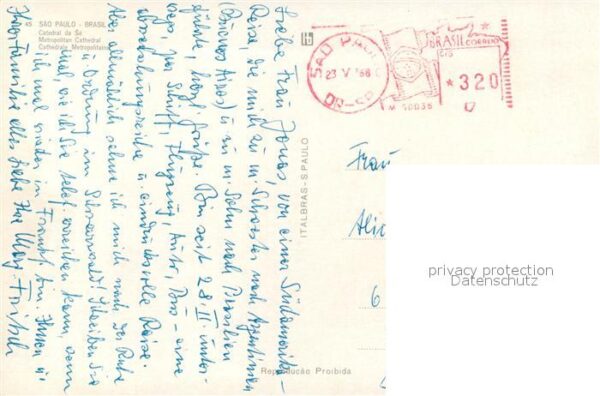 45 SÃO PAULO - BRASIL
Catedral da Sé
Metropolitan Cathedral
Cathédrale Metropolitaine
Liebe Frau Jonas, von einer Südamerika-
Reise, die mich zu m. Schwester nach Argentinien
(Buenos Aires) u. zu m. Sohn nach Brasilien
führt, herzl. Grüße. Bin seit 28. II. unter-
wegs, per Schiff, Flugzeug, Auto, Bus - eine
abwechslungsreiche u. eindrucksvolle Reise.
Aber allmählich sehne ich mich nach der Ruhe
u. Ordnung im Schwarzwald! Schreiben Sie
mal wie ich Sie telef. erreichen kann, wenn
ich mal wieder in Frankf. bin. Ihnen u.
alles Liebe Ihre
ITALBRAS - S. PAULO
Reprodução Proibida
SÃO PAULO
23 V 68
DR-SP
BRASIL CORREIO
*320
M 50036
Frau
6
privacy protection
Datenschutz